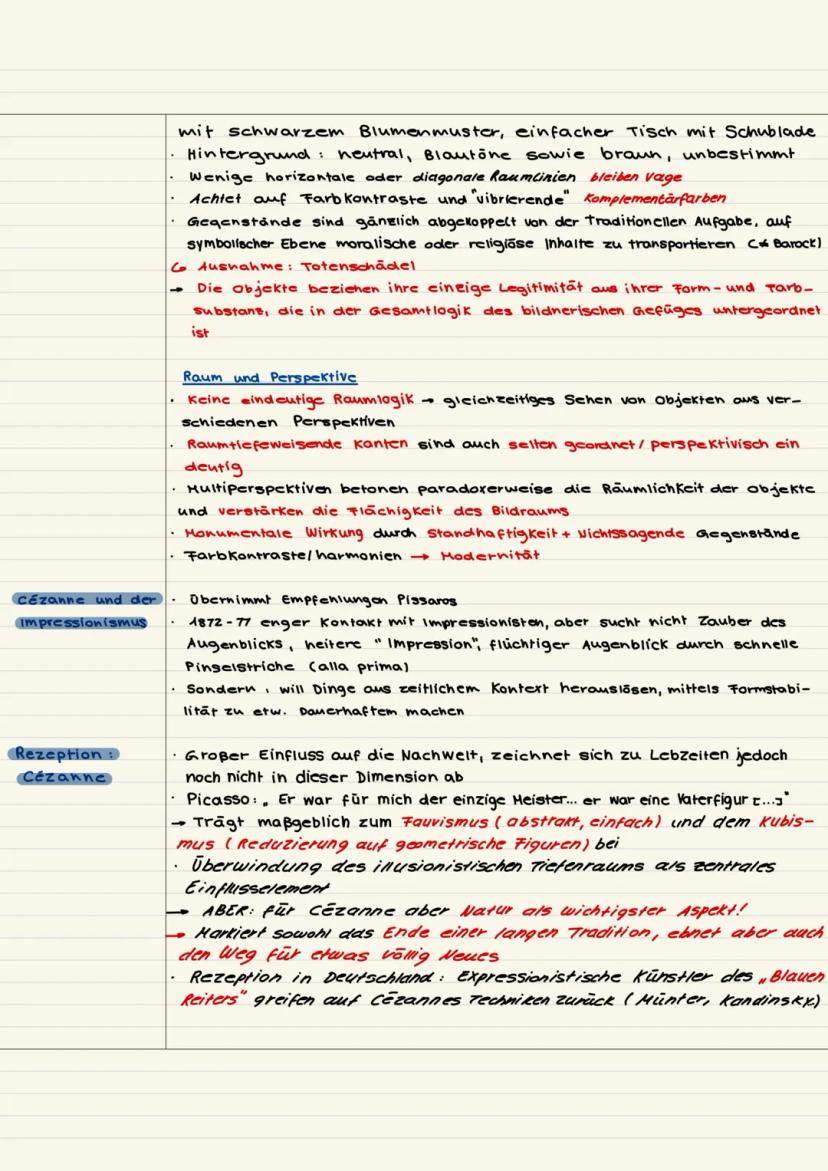 mit schwarzem Blumenmuster, einfacher Tisch mit Schublade
· Hintergrund : neutral, Blautöne sowie braun, unbestimmt
· Wenige horizontale oder diagonale Raumlinien bleiben vage
· Achtet auf Farbkontraste und "vibrierende" Komplementärfarben
· Gegenstände sind gänzlich abgekoppelt von der Traditionellen Aufgabe, auf
symbolischer Ebene moralische oder religiöse Inhalte zu transportieren (≠ Barock)
↳ Ausnahme : Totenschädel
→ Die Objekte beziehen ihre einzige Legitimität aus ihrer Form- und Farb-
substanz, die in der Gesamtlogik des bildnerischen Gefüges untergeordnet
ist
Raum und Perspektive
· Keine eindeutige Raumlogik → gleichzeitiges Sehen von Objekten aus ver-
schiedenen Perspektiven
· Raumtiefeweisende Kanten sind auch selten geordnet / perspektivisch ein
deutig
· Multiperspektiven betonen paradoxerweise die Räumlichkeit der Objekte
und verstärken die Flächigkeit des Bildraums
· Monumentale Wirkung durch Standhaftigkeit + Nichtssagende Gegenstände
· Farbkontraste/harmonien → Modernität
Cézanne und der
Impressionismus
· Übernimmt Empfehlungen Pissaros
· 1872-77 enger Kontakt mit Impressionisten, aber sucht nicht Zauber des
Augenblicks, heitere "Impression", flüchtiger Augenblick durch schnelle
Pinselstriche (alla prima)
· Sondern : will Dinge aus zeitlichem Kontext herauslösen, mittels Formstabi-
lität zu etw. Dauerhaftem machen
Rezeption :
Cézanne
· Großer Einfluss auf die Nachwelt, zeichnet sich zu Lebzeiten jedoch
noch nicht in dieser Dimension ab
· Picasso : „ Er war für mich der einzige Meister... er war eine Vaterfigur [...]"
→ Trägt maßgeblich zum Fauvismus (abstrakt, einfach) und dem Kubis-
mus (Reduzierung auf geometrische Figuren) bei
· Überwindung des illusionistischen Tiefenraums als zentrales
Einflusselement
→ ABER: für Cézanne aber Natur als wichtigster Aspekt!
→ Markiert sowohl das Ende einer langen Tradition, ebnet aber auch
den Weg für etwas völlig Neues
· Rezeption in Deutschland : Expressionistische Künstler des „Blauen
Reiters" greifen auf Cézannes Techniken zurück (Münter, Kandinsky)